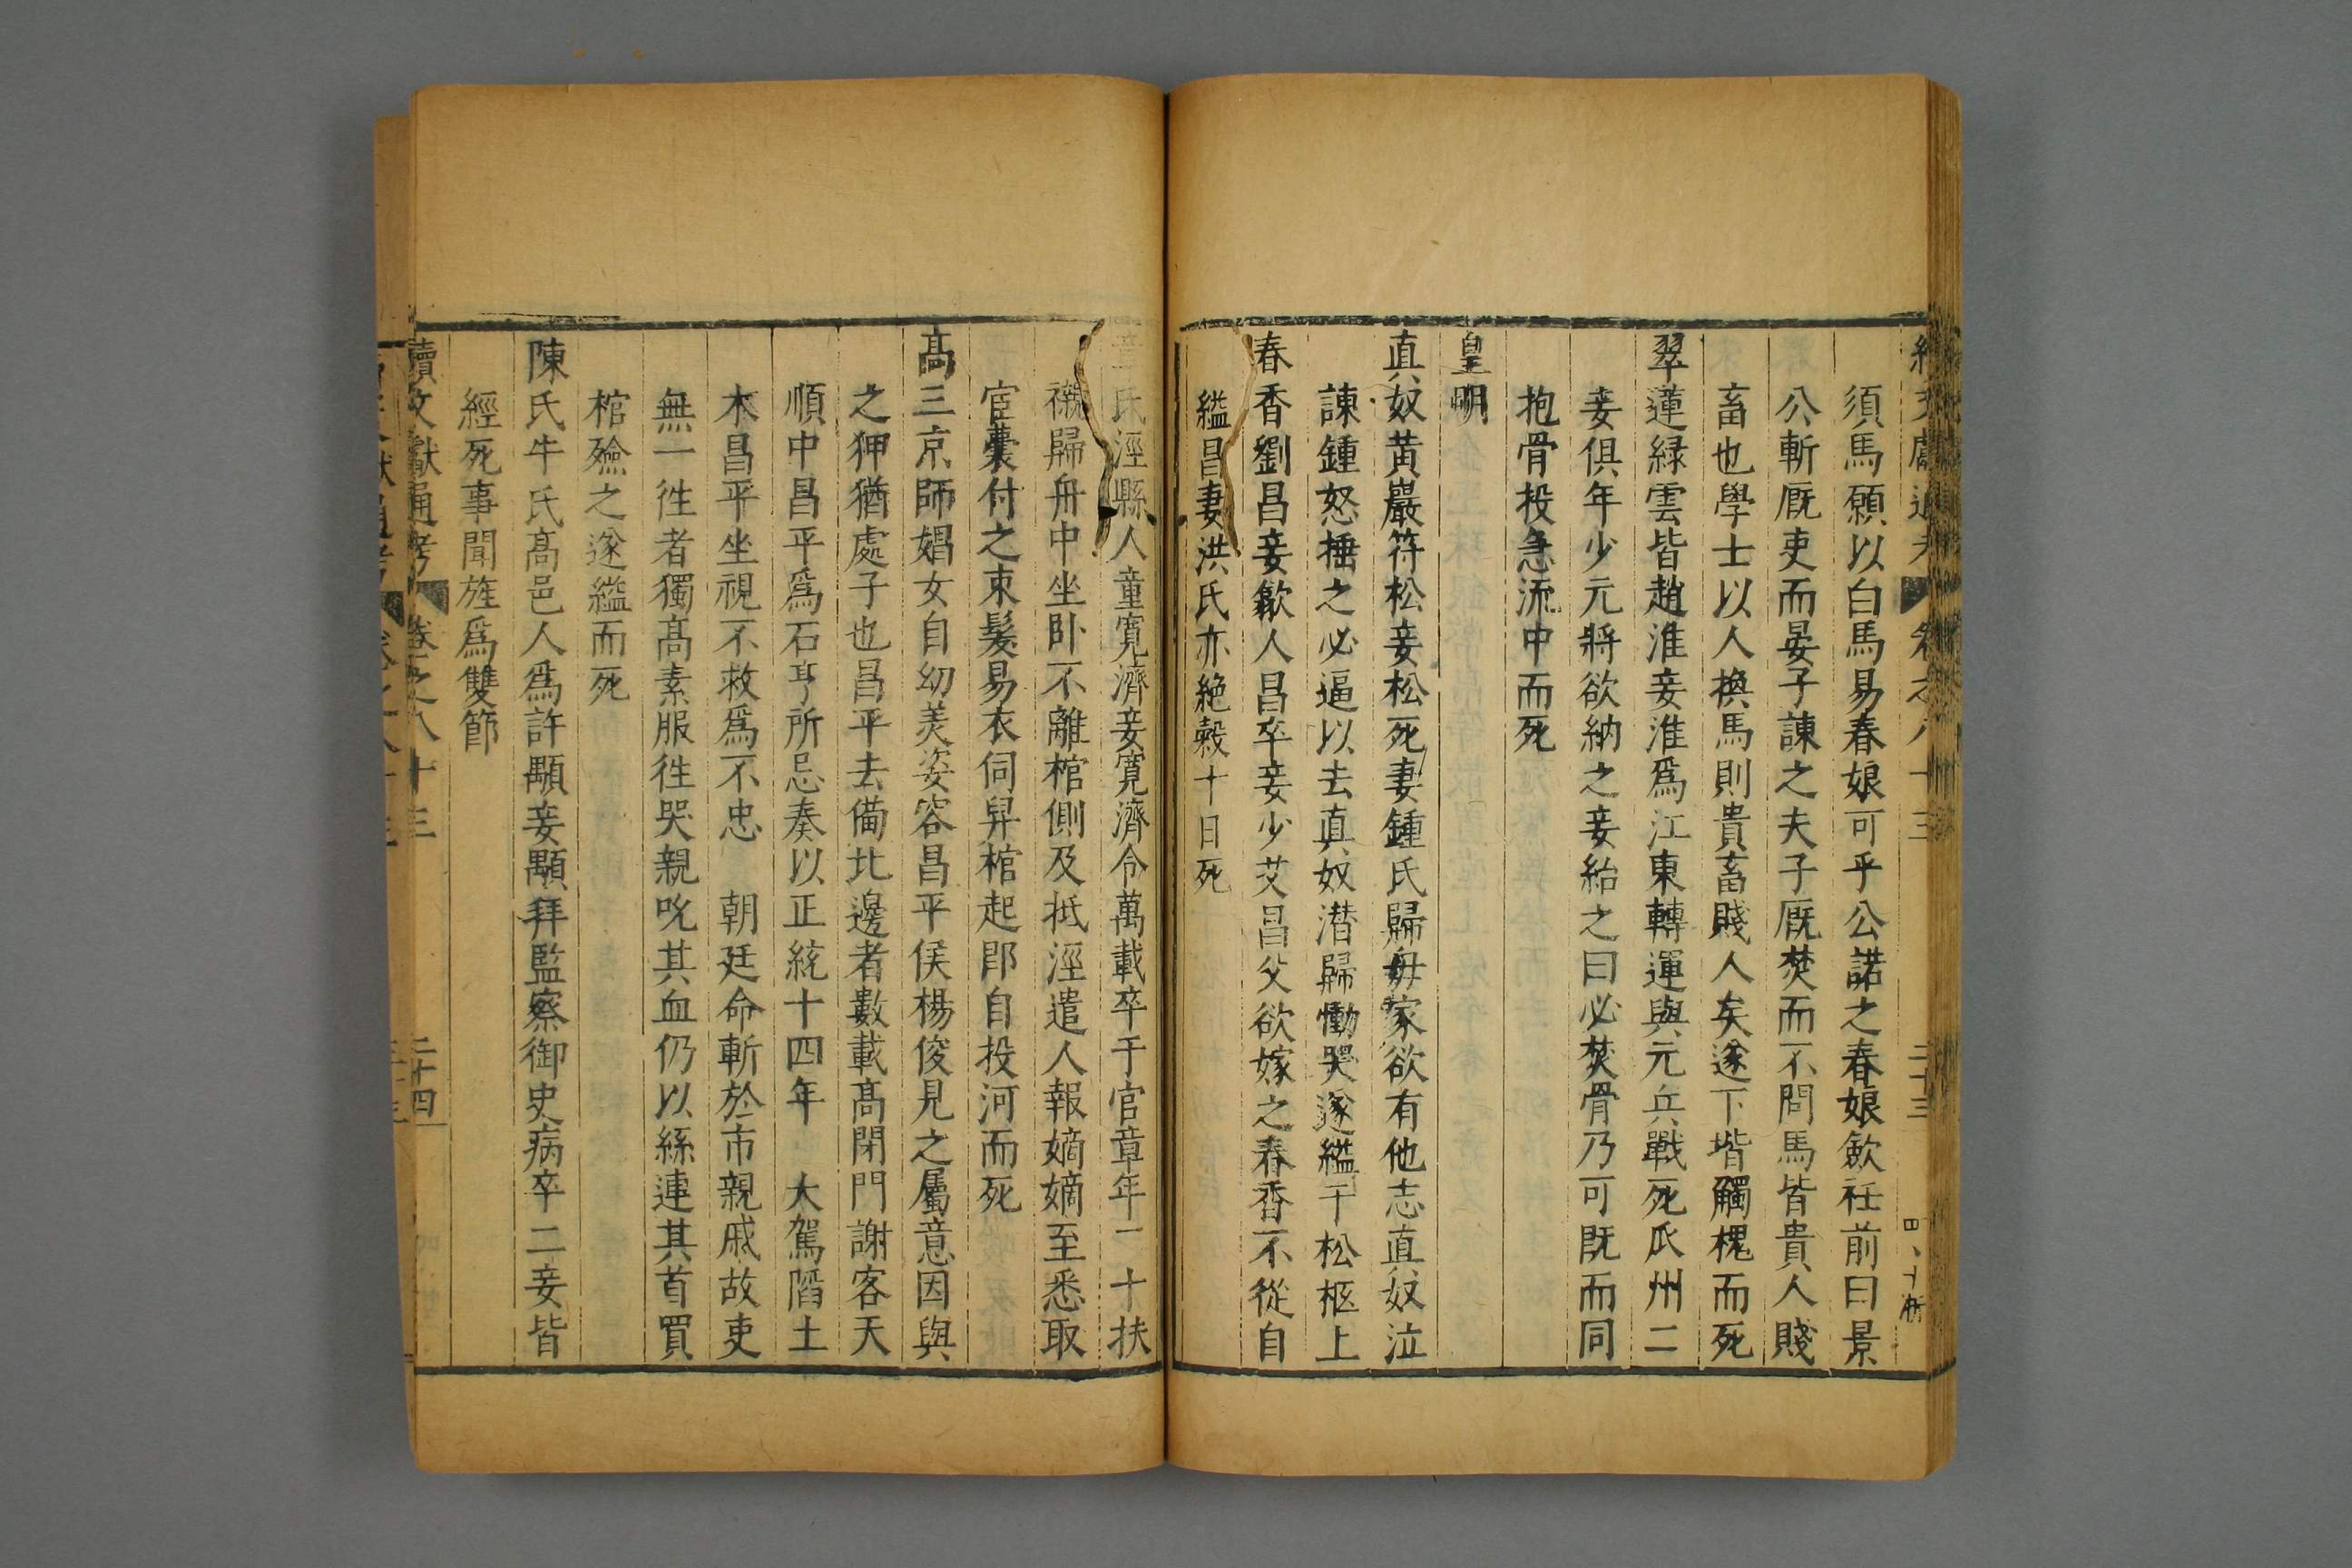 續文獻通考 卷之八十三 二十三
須馬願以白馬易春娘可乎公諾之春娘歛袵前曰景
公斬厩吏而晏子諫之夫子厩焚而不問馬皆貴人賤
畜也學士以人換馬則貴畜賤人矣遂下堦觸槐而死
翠蓮緑雲皆趙淮妾淮爲江東轉運與元兵戰死瓜州二
妾俱年少元將欲納之妾紿之曰必焚骨乃可既而同
抱骨投急流中而死
皇明
真奴黄巖符松妾松死妻鍾氏歸母家欲有他志真奴泣
諫鍾怒捶之必逼以去真奴潜歸慟哭遂縊于松柩上
春香劉昌妾歙人昌卒妾少艾昌父欲嫁之春香不從自
縊昌妻洪氏亦絶榖十日死
氏涇縣人童寛濟妾寛濟令萬載卒于官章年二十扶
櫬歸舟中坐卧不離棺側及抵涇遣人報嫡嫡至悉取
宦囊付之束髮易衣伺舁棺起即自投河而死
高三京師娼女自幼美姿容昌平侯楊俊見之屬意因與
之狎猶處子也昌平去備北邊者數載高閉門謝客天
順中昌平爲石亨所忌奏以正統十四年 大駕陷土
木昌平坐視不救爲不忠 朝廷命斬於市親戚故吏
無一徃者獨高素服徃哭親吮其血仍以絲連其首買
棺殮之遂縊而死
陳氏牛氏高邑人爲許顒妾顒拜監察御史病卒二妾皆
經死事聞旌爲雙節
續文獻通考 卷之八十三 二十四